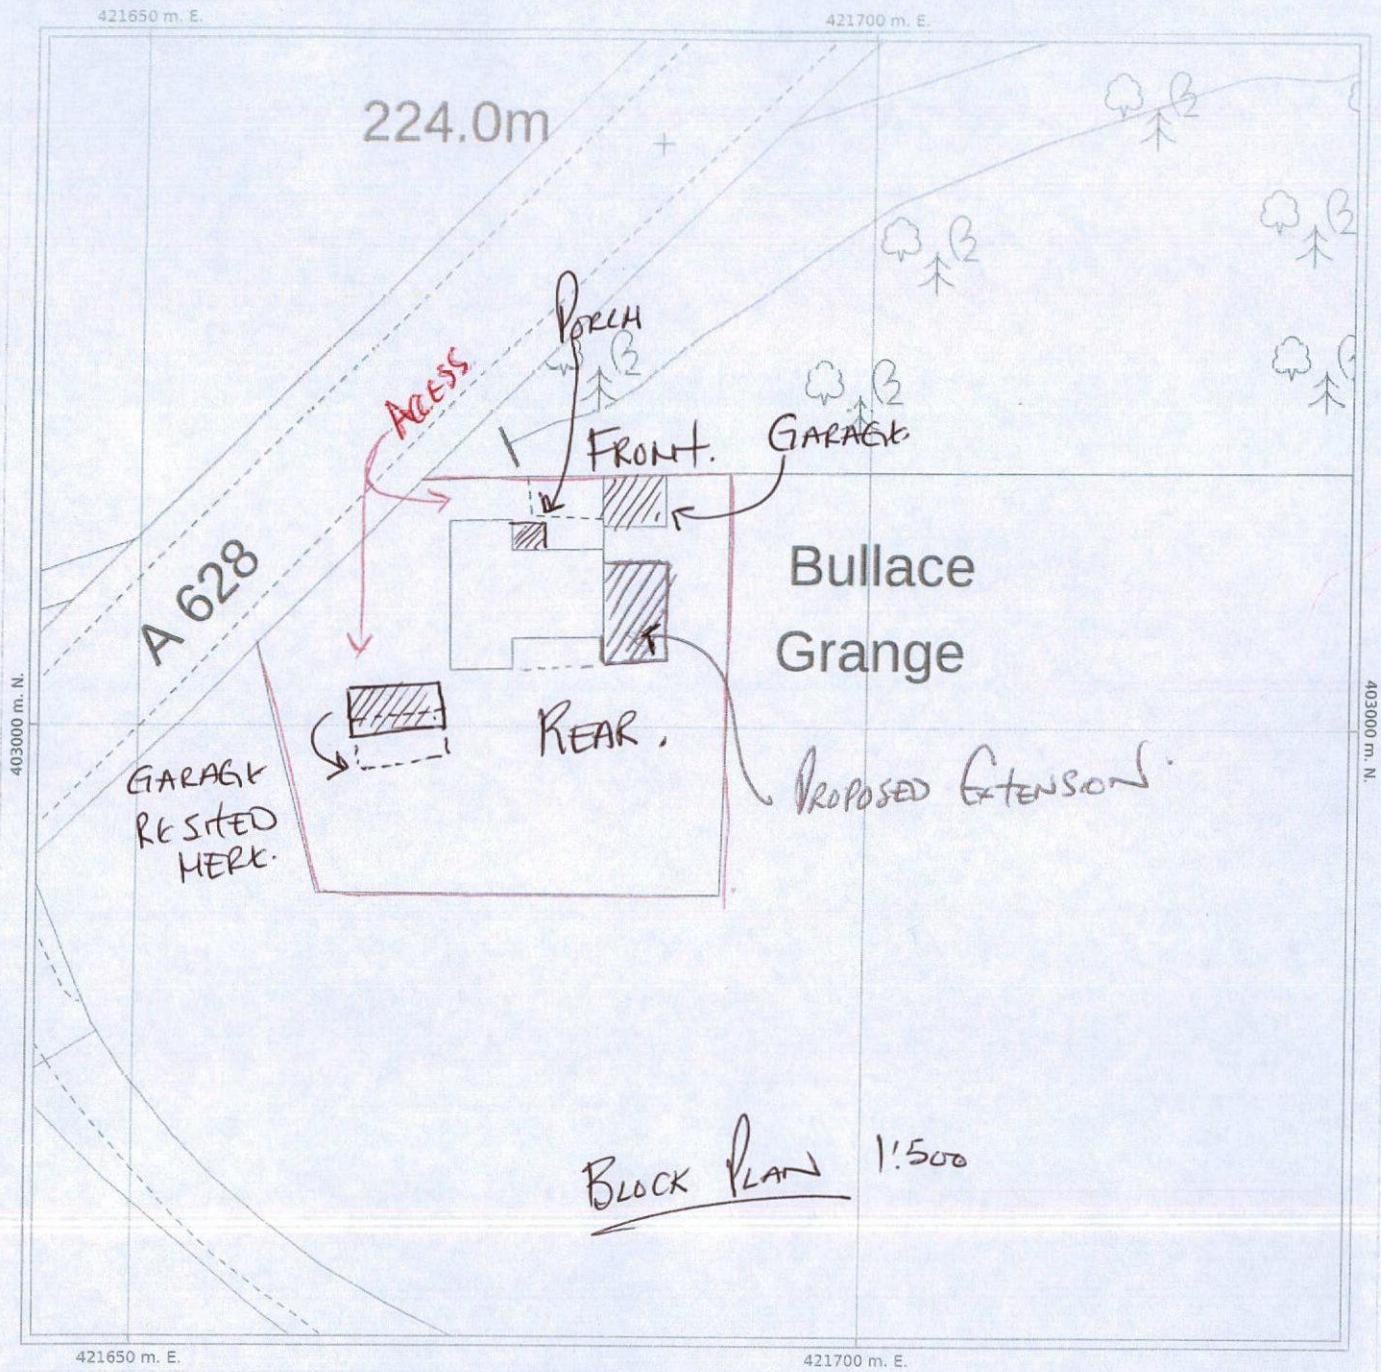 421650 m. E.
421700 m. E.
224.0m
PORCH
ACCESS
FRONT.
GARAGE.
A 628
Bullace
Grange
403000 m. N.
403000 m. N.
REAR.
GARAGE
RESITED
HERE.
PROPOSED EXTENSION.
BLOCK PLAN 1:500
421650 m. E.
421700 m. E.